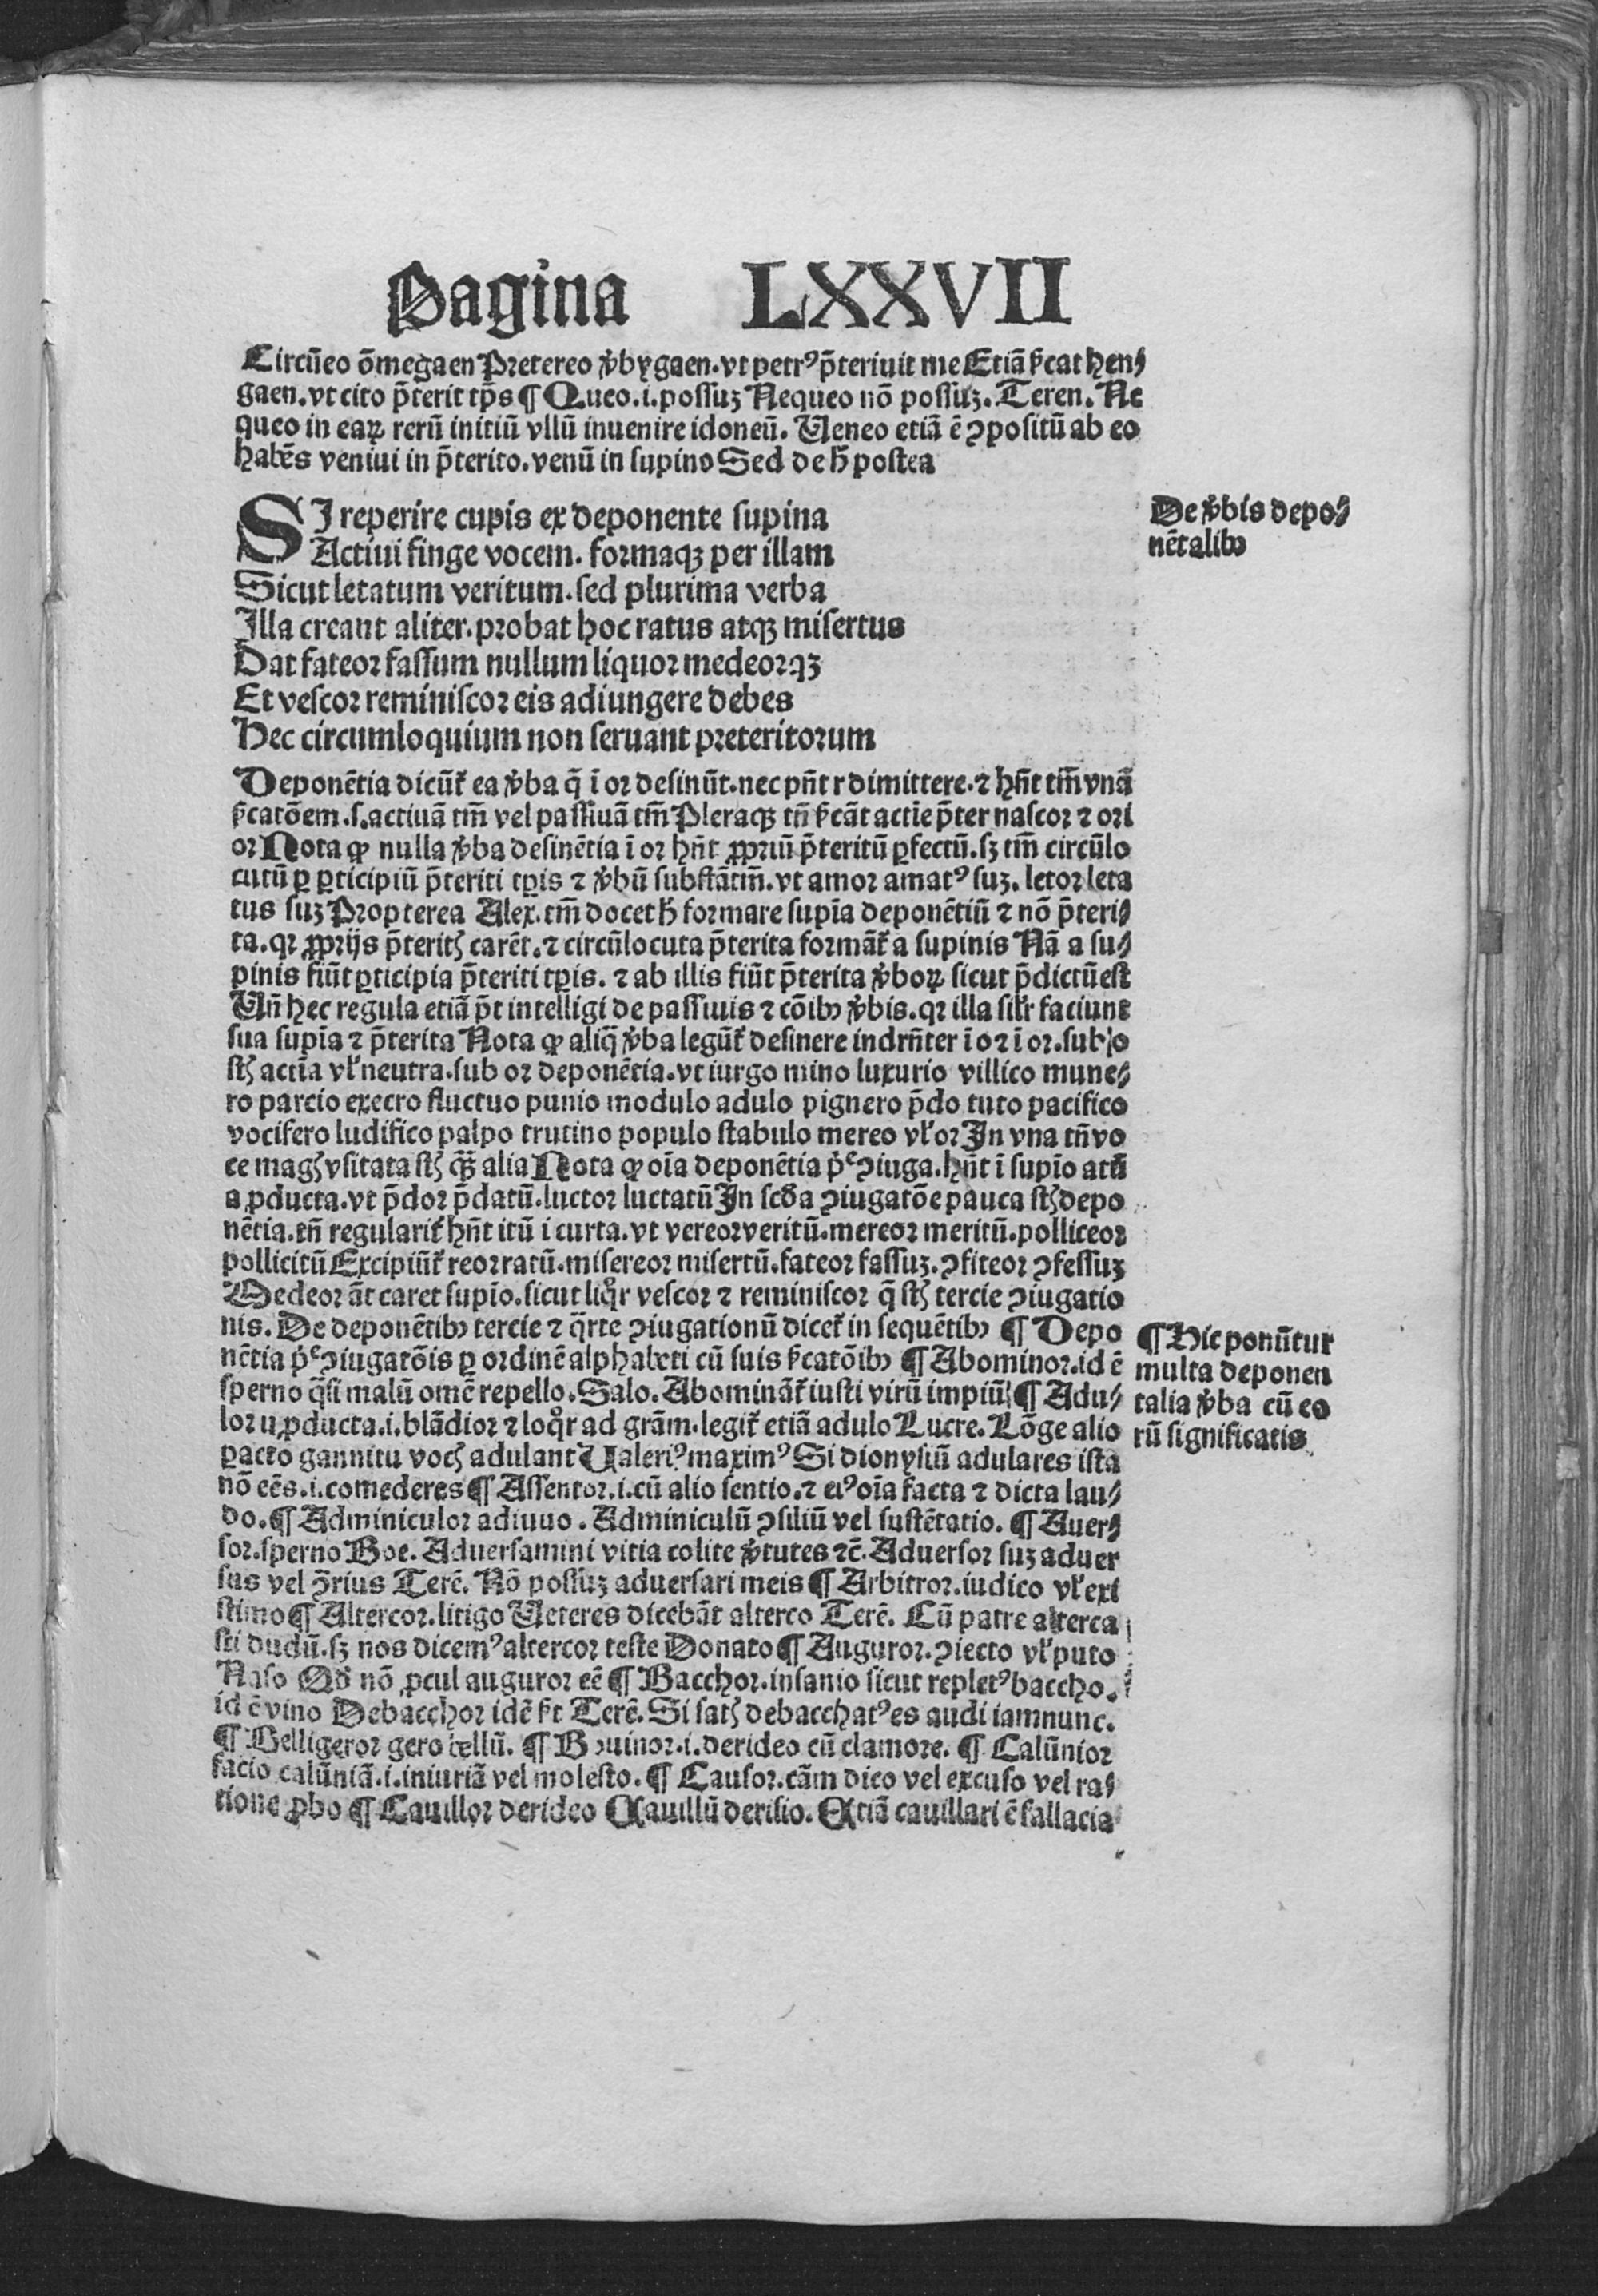 Pagina LXXVII
Circūeo ōmegaen Pretereo v̄bygaen. vt petrꝰ p̄teriuit me Etiā ſ̄cat hen⸗
gaen. vt cito p̄terit tp̄s ¶ Queo .i. poſſuꝫ Nequeo nō poſſuꝫ. Teren. Ne
queo in eaꝝ rerū initiū vllū inuenire idoneū. Ueneo etiā ē ꝯpoſitū ab eo
habēs veniui in p̄terito. venū in ſupino Sed de h̄ poſtea
SI reperire cupis ex deponente ſupina
Actiui finge vocem. formaqꝫ per illam
Sicut letatum veritum. ſed plurima verba
Illa creant aliter. probat hoc ratus atqꝫ miſertus
Dat fateor faſſum nullum liquor medeorqꝫ
Et veſcor reminiſcor eis adiungere debes
Hec circumloquium non ſeruant preteritorum
De v̄bis depo⸗
nētalibꝰ
Deponētia dicūt̄ ea v̄ba q̄ ī or deſinūt. nec pn̄t r dimittere. ⁊ hn̄t tm̄ vnā
ſ̄catōem .ſ. actiuā tm̄ vel paſſiuā tm̄ Pleraqꝫ tn̄ ſ̄cāt actīe p̄ter naſcor ⁊ ori
or Nota ꝙ nulla v̄ba deſinētia ī or hn̄t ꝓpriū p̄teritū ꝑfectū. ſꝫ tm̄ circūlo
cutū ꝑ ꝑticipiū p̄teriti tꝑis ⁊ v̄bū ſubſtātīm̄. vt amor amatꝰ ſuꝫ. letor leta
tus ſuꝫ Propterea Alex. tm̄ docet h̄ formare ſupīa deponētiū ⁊ nō p̄teri⸗
ta. qꝛ ꝓprijs p̄teritꝭ carēt. ⁊ circūlocuta p̄terita formāt̄ a ſupinis Nā a ſu⸗
pinis fiūt ꝑticipia p̄teriti tꝑis. ⁊ ab illis fiūt p̄terita v̄boꝝ ſicut p̄dictū eſt
Un̄ hec regula etiā p̄t intelligi de paſſiuis ⁊ cōibꝰ v̄bis. qꝛ illa ſil̄r faciunt
ſua ſupīa ⁊ p̄terita Nota ꝙ aliq̄ v̄ba legūt̄ deſinere indrn̄ter ī o ⁊ ī or. ſub o
ſtꝭ actīa vl̄ neutra. ſub or deponētia. vt iurgo mino luxurio villico mune⸗
ro parcio execro fluctuo punio modulo adulo pignero p̄do tuto pacifico
vocifero ludifico palpo trutino populo ſtabulo mereo vl̄ or In vna tn̄ vo
ce magꝭ vſitata ſtꝭ q̄ꝫ alia Nota ꝙ oīa deponētia p̄ᵉ ꝯiuga. hn̄t ī ſupīo atū
a ꝓducta. vt p̄dor p̄datū. luctor luctatū In ſcd̄a ꝯiugatōe pauca ſtꝭ depo
nētia. tn̄ regularit̄ hn̄t itū i curta. vt vereor veritū. mereor meritū. polliceor
pollicitū Excipiūt̄ reor ratū. miſereor miſertū. fateor faſſuꝫ. ꝯfiteor ꝯfeſſuꝫ
Medeor āt caret ſupīo. ſicut liq̊r veſcor ⁊ reminiſcor q̄ ſtꝭ tercie ꝯiugatio
nis. De deponētibꝰ tercie ⁊ q̄rte ꝯiugationū dicet̄ in ſequētibꝰ ¶ Depo
nētia p̄ᵉ ꝯiugatōis ꝑ ordinē alphabeti cū ſuis ſ̄catōibꝰ ¶ Abominor. id ē
ſperno q̄ſi malū omē repello. Salo. Abomināt̄ iuſti virū impiū ¶ Adu⸗
lor u ꝓducta .i. blādior ⁊ loq̊r ad grām. legit̄ etiā adulo Lucre. Lōge alio
pacto gannitu vocꝭ adulant Ualeriꝰ maximꝰ Si dionyſiū adulares iſta
nō eēs .i. comederes ¶ Aſſentor .i. cū alio ſentio. ⁊ eiꝰ oīa facta ⁊ dicta lau⸗
do. ¶ Adminiculor adiuuo. Adminiculū ꝯſiliū vel ſuſtētatio. ¶ Auer⸗
ſor. ſperno Boe. Aduerſamini vitia colite v̄tutes ⁊c̄. Aduerſor ſuꝫ aduer
ſus vel ꝯ̄rius Terē. Nō poſſuꝫ aduerſari meis ¶ Arbitror. iudico vl̄ exi
ſtimo ¶ Altercor. litigo Ueteres dicebāt alterco Terē. Cū patre alterca
ſti dudū. ſꝫ nos dicemꝰ altercor teſte Donato ¶ Auguror. ꝯiecto vl̄ puto
Naſo Qd̄ nō ꝓcul auguror eē ¶ Bacchor. inſanio ſicut repletꝰ baccho.
id ē vino Debacchor idē ſ̄t Terē. Si ſatꝭ debacchatꝰ es audi iam nunc.
¶ Belligeror gero bellū. ¶ Bouinor .i. derideo cū clamore. ¶ Calūnior
facio calūniā .i. iniuriā vel moleſto. ¶ Cauſor. cām dico vel excuſo vel ra⸗
tione ꝓbo ¶ Cauillor derideo Cauillū deriſio. Etiā cauillari ē fallacia
¶ Hic ponūtur
multa deponen
talia v̄ba cū eo
rū ſignificatis